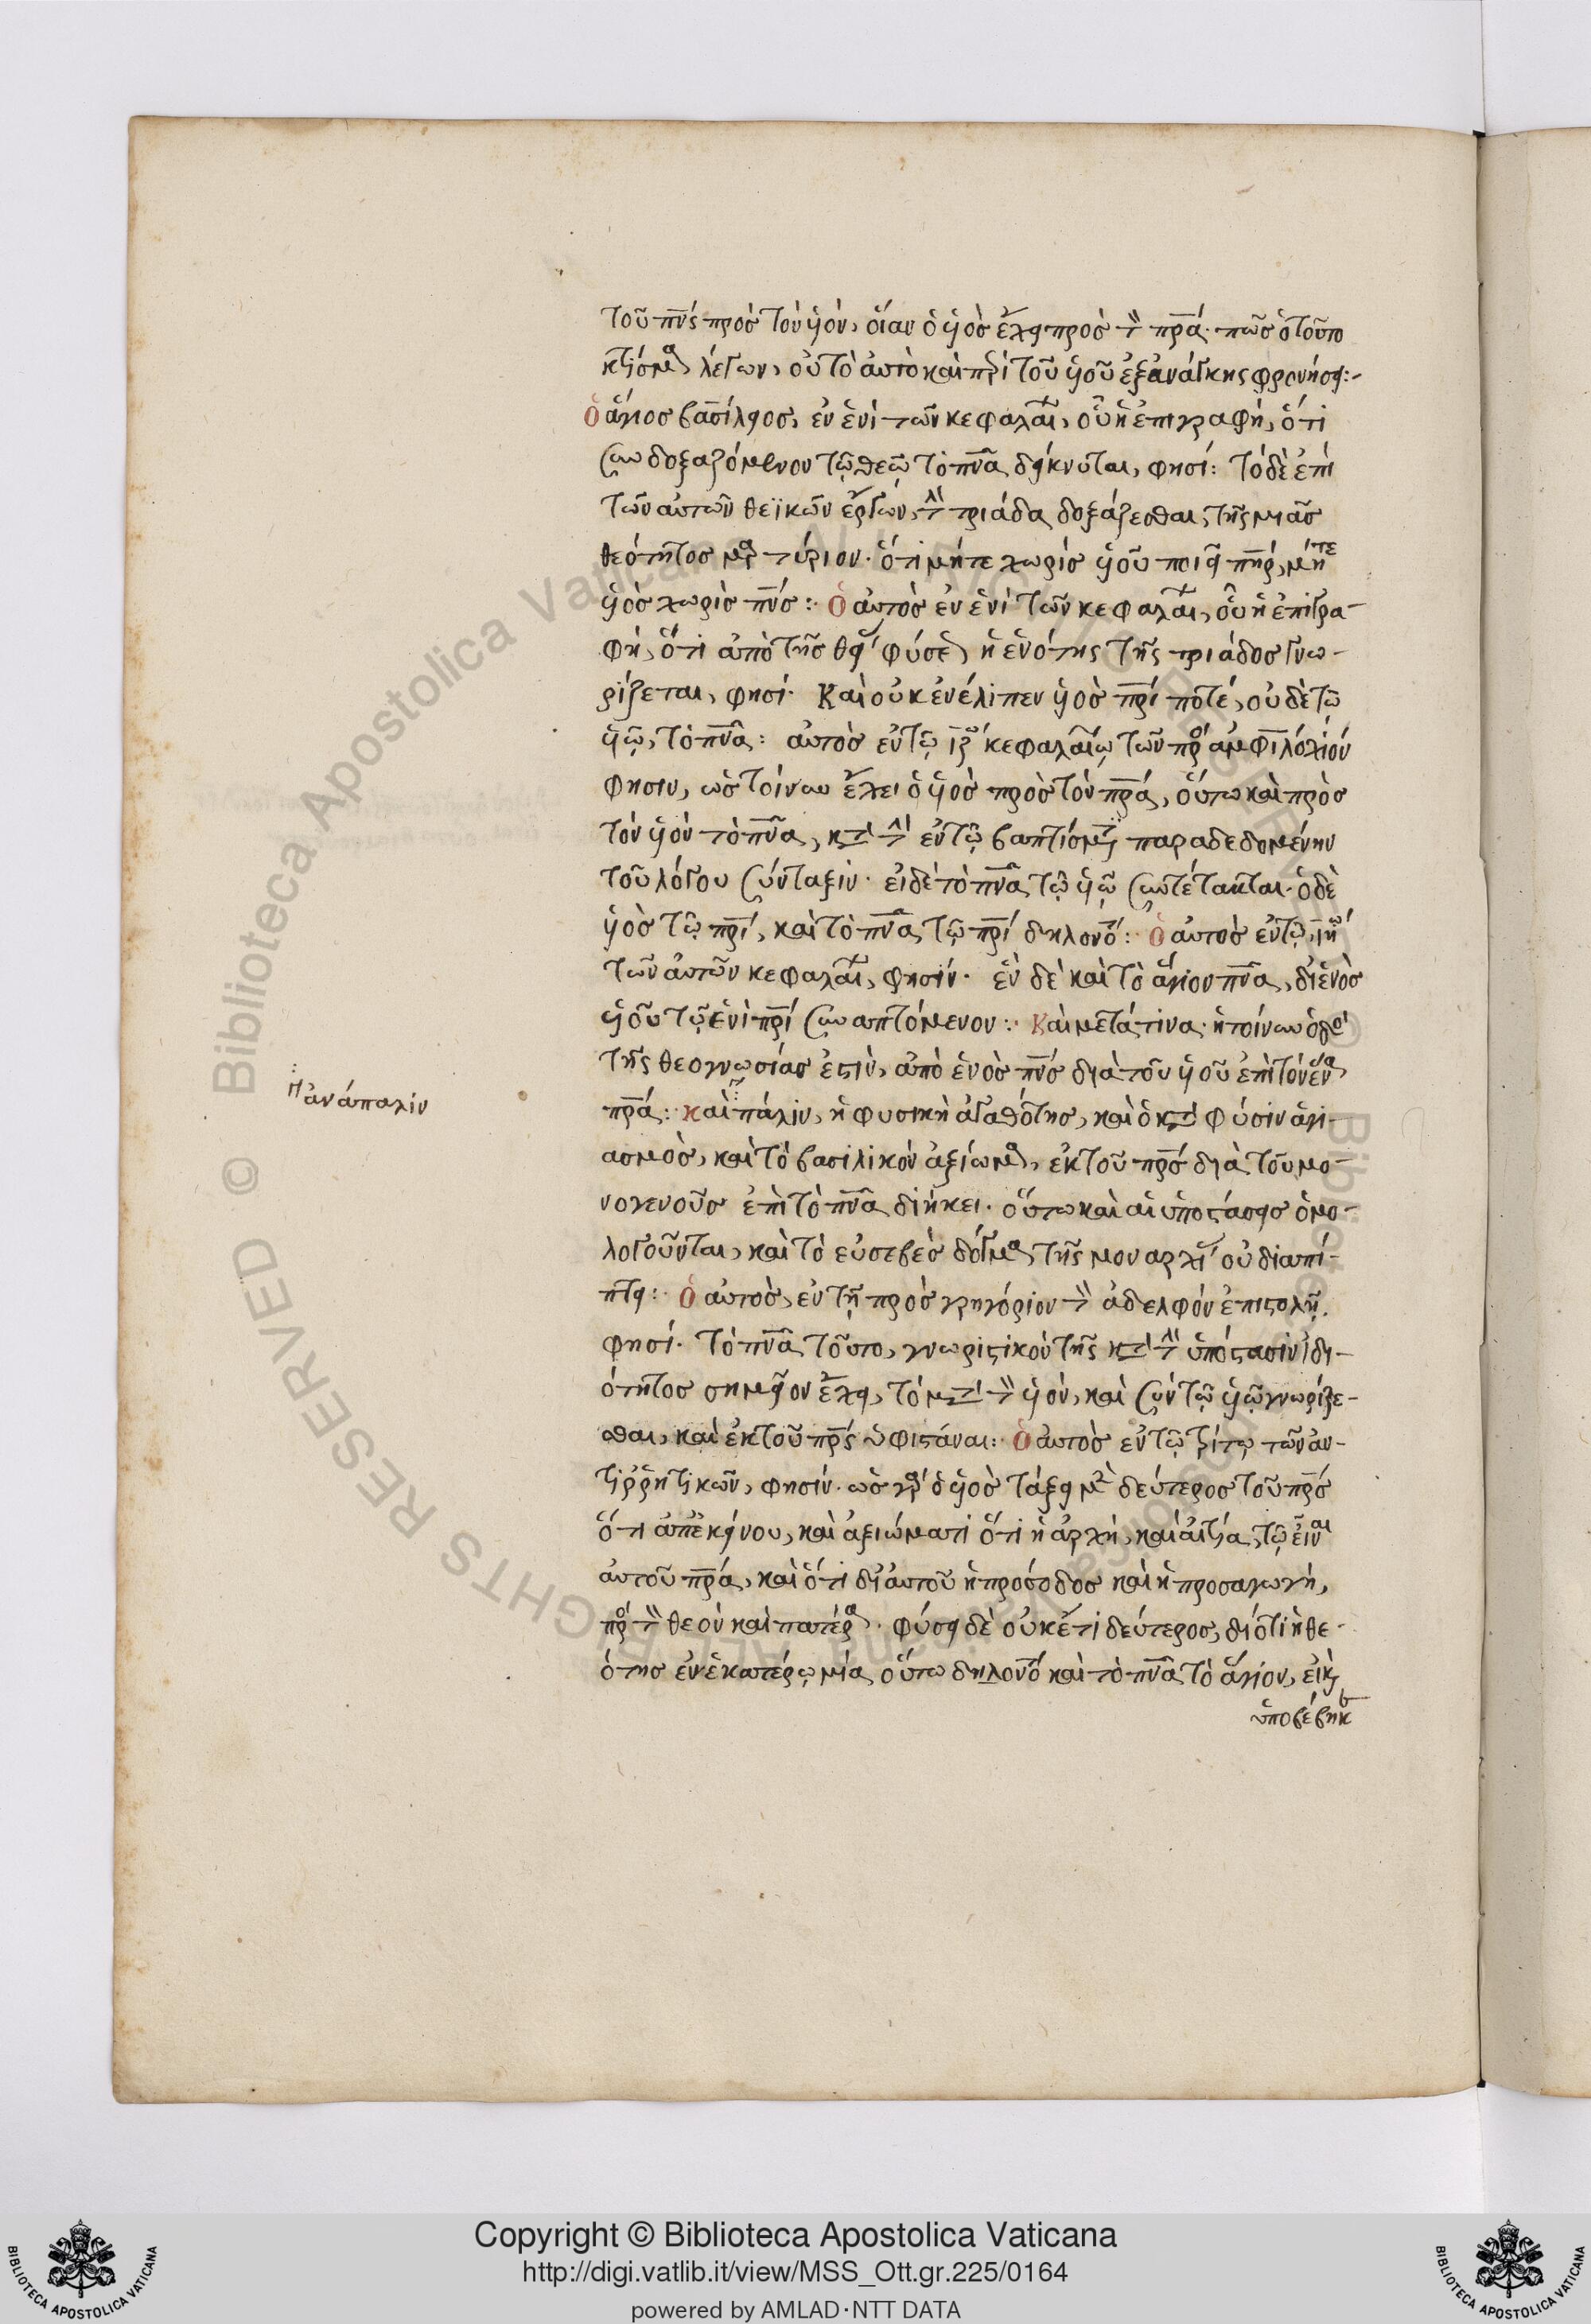 τοῦ πνς πρὸς τὸν ὑὸν, οἵαν ὁ ὑὸς ἔχει πρὸς τὸν πρα· πῶς ὁ τοῦτο
κτίσμα λέγων, οὐ τὸ αὐτὸ καὶ περὶ τοῦ ὑοῦ ἐξανάγκης φρονήσει:-
Ὁ ἅγιος βασίλειος, ἐν ἑνὶ τῶν κεφαλαίων, οὗ ἡ ἐπιγραφὴ, ὅτι
συνδοξαζόμενον τῷ θεῷ τὸ πνα δείκνυται, φησί: τὸ δὲ ἐπὶ
τῶν αὐτῶν θεϊκῶν ἔργων, τὴν τριάδα δοξάζεσθαι, τῆς μιᾶς
θεότητος μαρτύριον· ὅτι μήτε χωρὶς ὑοῦ ποιεῖ πηρ, μήτε
ὑὸς χωρὶς πνς: Ὁ αὐτὸς ἐν ἑνὶ τῶν κεφαλαίων, οὗ ἡ ἐπιγρα-
φὴ, ὅτι ἀπὸ τῆς θείας φύσεως ἡ ἑνότης τῆς τριάδος γνω-
ρίζεται, φησί· Καὶ οὐκ ἐνέλιπεν ὑὸς πρί ποτέ, οὐδὲ τῷ
ὑῷ, τὸ πνα: αὐτὸς ἐν τῷ ιζω κεφαλαίῳ τῶν πρὸς ἀμφιλόχιόν
φησιν, ὡς τοίνυν ἔχει ὁ ὑὸς πρὸς τὸν πρα, οὕτω καὶ πρὸς
τὸν ὑὸν τὸ πνα, κατὰ τὴν ἐν τῷ βαπτίσματι παραδεδομένην
τοῦ λόγου σύνταξιν· εἰ δὲ τὸ πνα τῷ ὑῷ συντέτακται· ὁ δὲ
ὑὸς τῷ πρι, καὶ τὸ πνα τῷ πρι δηλονότι: Ὁ αὐτὸς ἐν τῷ ιηω
τῶν αὐτῶν κεφαλαίων, φησίν· ἓν δὲ καὶ τὸ ἅγιον πνα, δι' ἑνὸς
ὑοῦ τῷ ἑνὶ πρι συναπτόμενον: Καὶ μετά τινα· ἡ τοίνυν ὁδὸς
τῆς θεογνωσίας ἐστὶν, ἀπὸ ἑνὸς πνς διὰ τοῦ ὑοῦ ἐπὶ τὸν ἕνα
πρα: καὶ πάλιν, ἡ φυσικὴ ἀγαθότης, καὶ ὁ κατὰ φύσιν ἁγι-
ασμὸς, καὶ τὸ βασιλικὸν ἀξίωμα, ἐκ τοῦ πρς διὰ τοῦ μο-
νογενοῦς ἐπὶ τὸ πνα διήκει· οὕτω καὶ αἱ ὑποστάσεις ὁμο-
λογοῦνται, καὶ τὸ εὐσεβὲς δόγμα τῆς μοναρχίας οὐ διαπί-
πτει: Ὁ αὐτὸς, ἐν τῇ πρὸς γρηγόριον τὸν ἀδελφὸν ἐπιστολῇ.
φησί· Τὸ πνα τοῦτο, γνωριστικὸν τῆς κατὰ τὴν ὑπόστασιν ἰδι-
ότητος σημεῖον ἔχει, τὸ μετὰ τὸν ὑὸν, καὶ σὺν τῷ ὑῷ γνωρίζε-
σθαι, καὶ ἐκ τοῦ πρς ὑφιστάναι: Ὁ αὐτὸς ἐν τῷ τρίτῳ τῶν ἀν-
τιῤῥητικῶν, φησίν· ὡς γὰρ ὁ ὑὸς τάξει μὲν δεύτερος τοῦ πρς
ὅτι ἀπ' ἐκείνου, καὶ ἀξιώματι ὅτι ἡ ἀρχὴ, καὶ αἰτία, τῷ εἶναι
αὐτοῦ πρα, καὶ ὅτι δι' αὐτοῦ ἡ πρόσοδος καὶ ἡ προσαγωγὴ,
πρὸς τὸν θεὸν καὶ πατέρα· φύσει δὲ οὐκέτι δεύτερος, διότι ἡ θε-
ότης ἐν ἑκατέρῳ μία οὕτω δηλονότι καὶ τὸ πνα τὸ ἅγιον, εἰ καὶ
ὑποβέβηκ
ἢ ἀνάπαλιν
Copyright © Biblioteca Apostolica Vaticana
http://digi.vatlib.it/view/MSS_Ott.gr.225/0164
powered by AMLAD·NTT DATA